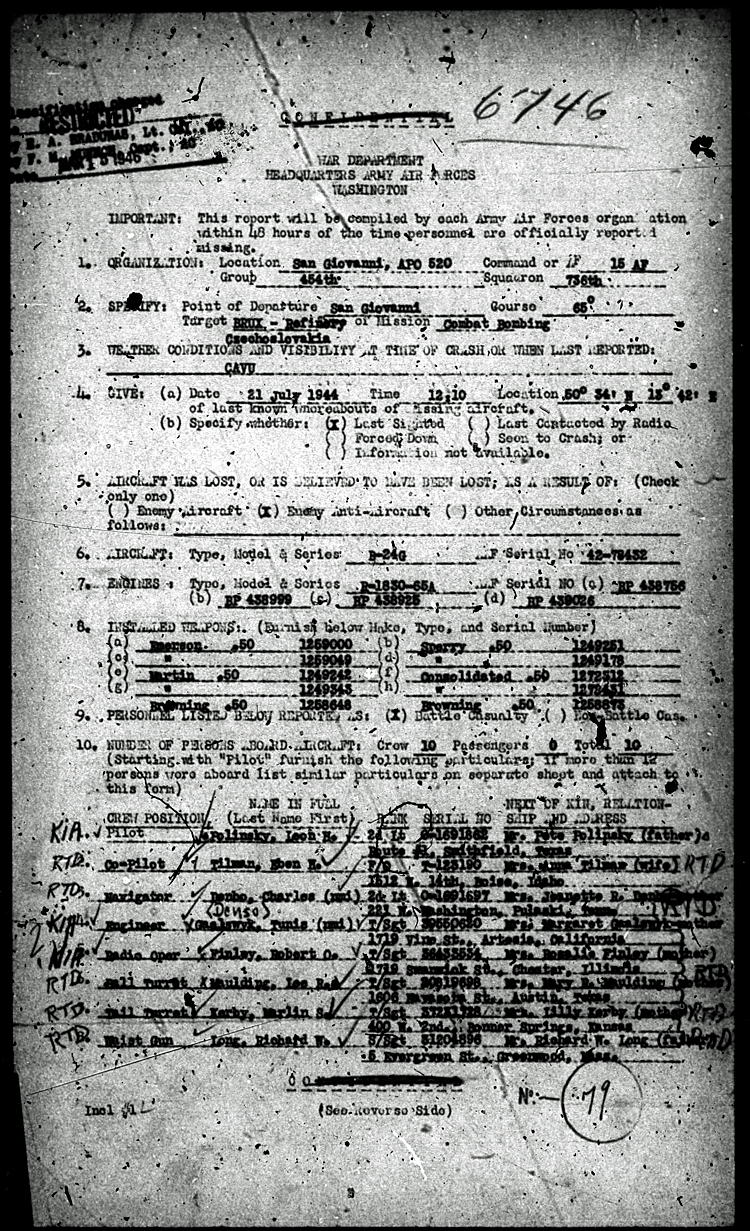 RESTRICTED
CONFIDENTIAL
6746
WAR DEPARTMENT
HEADQUARTERS ARMY AIR FORCES
WASHINGTON
IMPORTANT: This report will be compiled by each Army Air Forces organization
within 48 hours of the time personnel are officially reported
missing.
1. ORGANIZATION: Location San Giovanni, APO 520 Command or AF 15 AF
Group 454th Squadron 736th
2. SPECIFY: Point of Departure San Giovanni Course 65°
Target BRUX - Refinery or Mission Combat Bombing
Czechoslovakia
3. WEATHER CONDITIONS AND VISIBILITY AT TIME OF CRASH OR WHEN LAST REPORTED:
CAVU
4. GIVE: (a) Date 21 July 1944 Time 12:10 Location 50° 34' N 13° 42' E
of last known whereabouts of missing aircraft.
(b) Specify whether: (X) Last Sighted ( ) Last Contacted by Radio
( ) Forced Down ( ) Seen to Crash; or
( ) Information not available.
5. AIRCRAFT WAS LOST, OR IS BELIEVED TO HAVE BEEN LOST; AS A RESULT OF: (Check
only one)
( ) Enemy Aircraft (X) Enemy Anti-Aircraft ( ) Other Circumstances as
follows:
6. AIRCRAFT: Type, Model & Series B-24G AAF Serial No 42-78432
7. ENGINES: Type, Model & Series R-1830-65A AAF Serial NO (a) BP 438756
(b) BP 438999 (c) BP 438925 (d) BP 439026
8. INSTALLED WEAPONS: (Furnish below Make, Type, and Serial Number)
(a) Emerson .50 1259000 (b) Sperry .50 1249251
(c) " 1259049 (d) " 1249178
(e) Martin .50 1249242 (f) Consolidated .50 1272312
(g) " 1249343 (h) " 1272431
Browning .50 1258648 Browning .50 1258873
9. PERSONNEL LISTED BELOW REPORTED AS: (X) Battle Casualty ( ) Non Battle Cas.
10. NUMBER OF PERSONS ABOARD AIRCRAFT: Crew 10 Passengers 0 Total 10
(Starting with "Pilot" furnish the following particulars; if more than 12
persons were aboard list similar particulars on separate sheet and attach to
this form)
NAME IN FULL NEXT OF KIN, RELATION-
CREW POSITION (Last Name First) RANK SERIAL NO SHIP AND ADDRESS
KIA Pilot Polinsky, Leon 2d Lt Mr. Pete Polinsky (father)
Smithfield, Texas
RTD Co-Pilot Tilman, Eben F/O T-123190 Mrs. Tilman (wife) RTD
1512 N. 14th, Boise, Idaho
RTD Navigator Denbo, Charles (nmi) 2d Lt Mrs. Jeanette R.
(Denso) Washington, Pulaski, Tenn. RTD
KIA Engineer Tunis (nmi) T/Sgt Mrs. Margaret mother
1719 Vine St., Artesia, California
KIA Radio Oper Finley, Robert T/Sgt Mrs. Rosalie Finley (mother)
Swanwick St., Chester, Illinois
RTD Ball Turret Maulding, Lee Mrs. Mary Maulding (mother) RTD
1606 St., Austin, Texas
RTD Tail Turret Kerby, Marlin Mrs. Lilly Kerby (mother) RTD
400 W. 2nd, Bonner Springs, Kansas
RTD Waist Gun Long, Richard W. S/Sgt 31204896 Mr. Richard W. Long (father) RTD
5 Evergreen St., Greenwood, Mass.
Incl #1 (See Reverse Side) No. 79